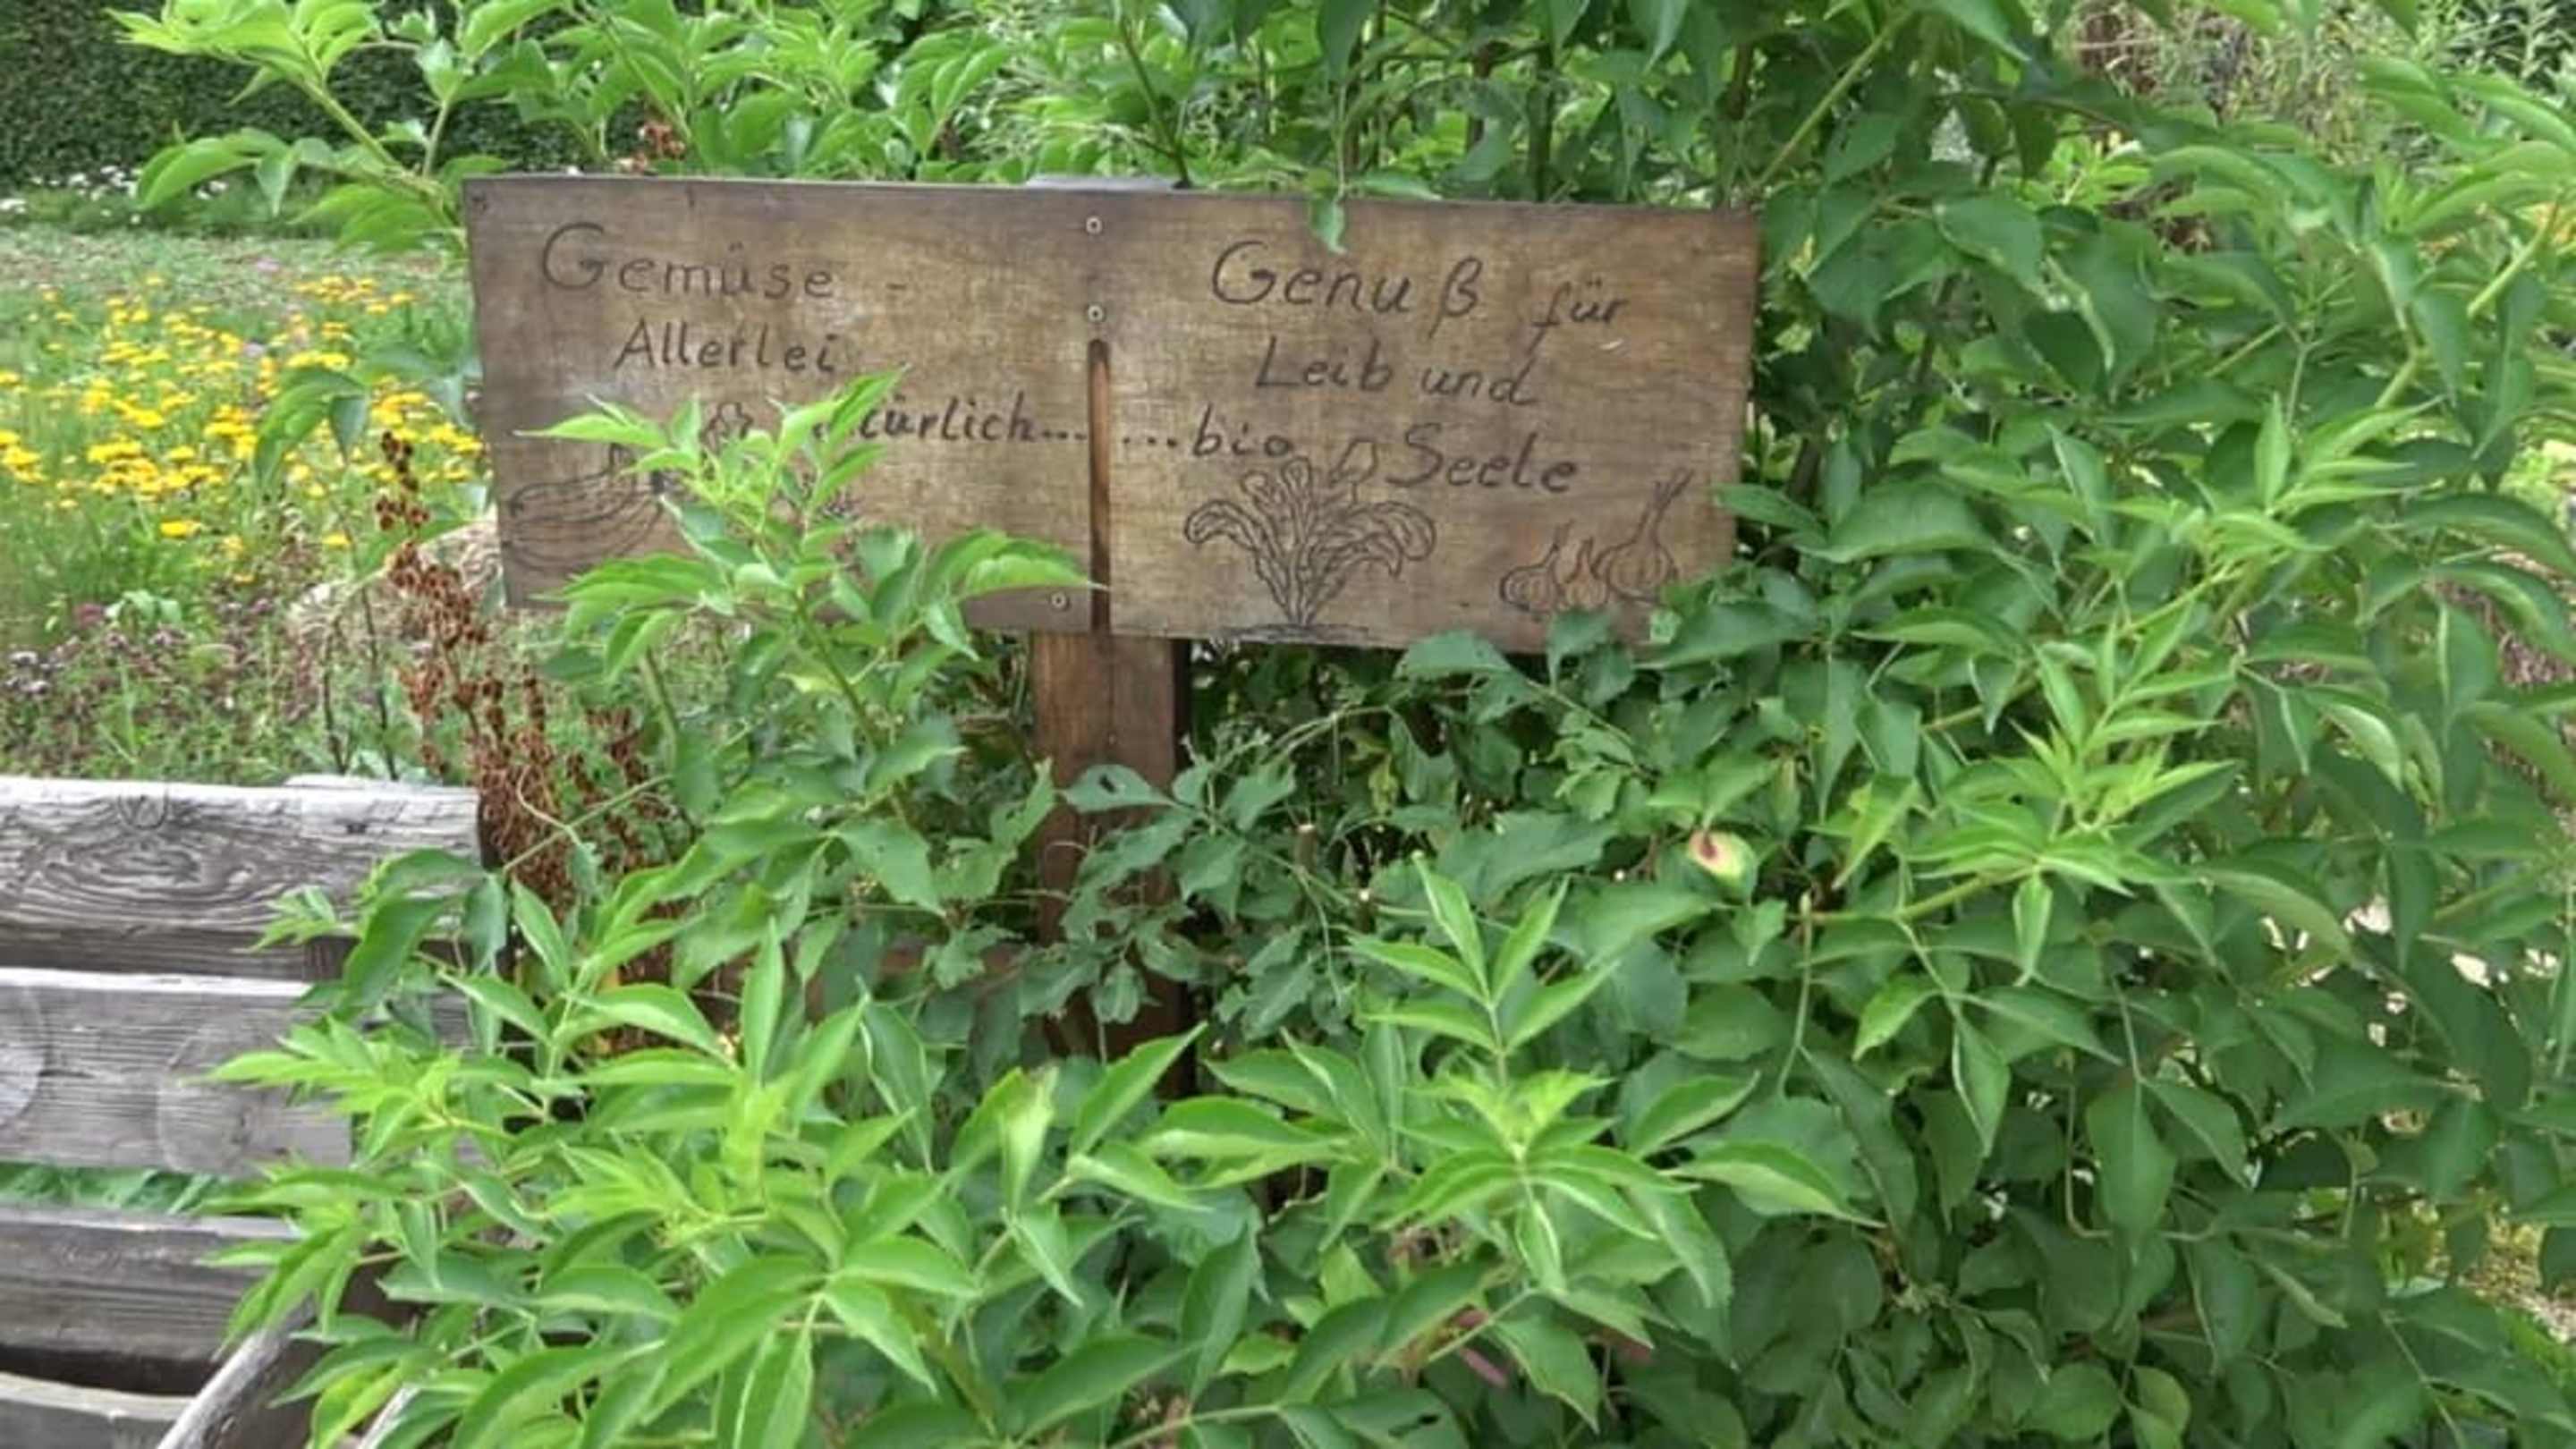 Gemüse -
Allerlei
türlich... ...bio
Genuß für
Leib und
Seele